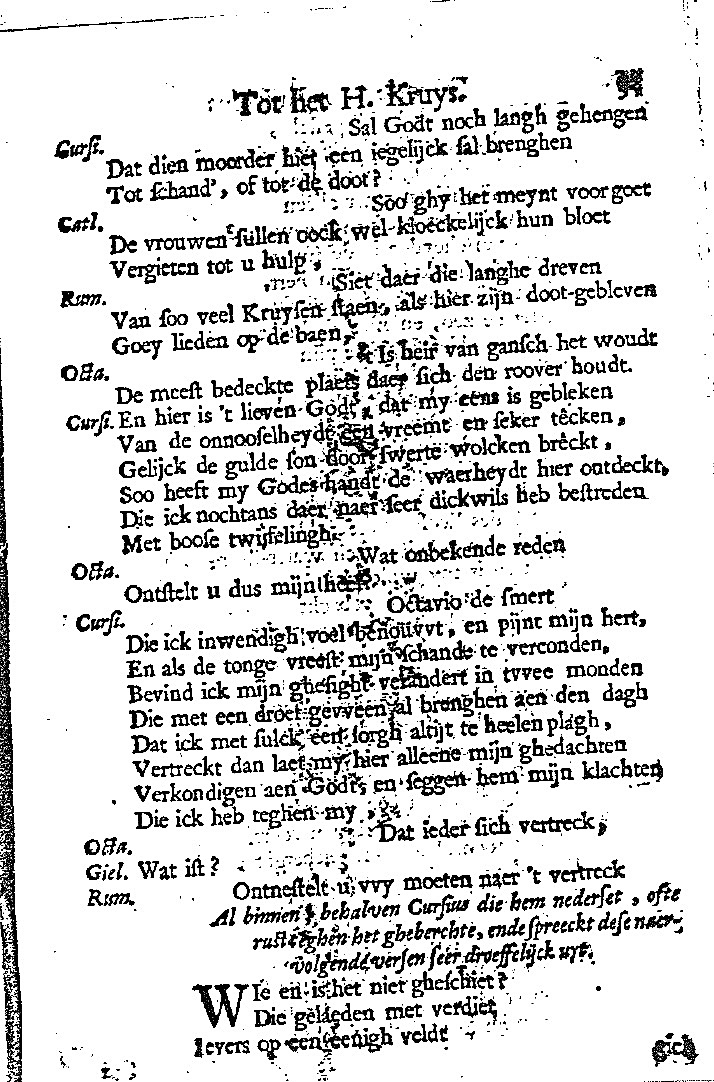 Tot het H. Kruys.
Cursi. Sal Godt noch langh gehengen
Dat dien moorder hier een iegelijck sal brenghen
Tot schand', of tot de doot?
Catl. Soo ghy het meynt voor goet
De vrouwen sullen oock wel kloeckelijck hun bloet
Vergieten tot u hulp,
Rum. Siet daer die langhe dreven
Van soo veel Kruysen staen, als hier zijn doot-gebleven
Goey lieden op de baen,
Octa. Is heir van gansch het woudt
De meest bedeckte plaets daer sich den roover houdt.
Cursi. En hier is 't lieven Godt, dat my eens is gebleken
Van de onnooselheydt een vreemt en seker têcken,
Gelijck de gulde son door swerte wolcken brêckt,
Soo heeft my Godes handt de waerheydt hier ontdeckt,
Die ick nochtans daer naer seer dickwils heb bestreden
Met boose twijfelingh.
Octa. Wat onbekende reden
Ontstelt u dus mijn heer?
Cursi. Octavio de smert
Die ick inwendigh voel benouvvt, en pijnt mijn hert,
En als de tonge vreest mijn schande te verconden,
Bevind ick mijn ghesight verandert in tvvee monden
Die met een droef gevveen al brenghen aen den dagh
Dat ick met sulck een sorgh altijt te heelen plagh,
Vertreckt dan laet my hier alleene mijn ghedachten
Verkondigen aen Godt, en seggen hem mijn klachten
Die ick heb teghen my.
Octa. Dat ieder sich vertreck,
Giel. Wat ist?
Rum. Ontnestelt u, vvy moeten naer 't vertreck
Al binnen, behalven Cursius die hem nederset, ofte
rust teghen het gheberchte, ende spreeckt dese naer-
volgende versen seer droeffelijck uyt.
WIe en is het niet gheschiet?
Die gelaeden met verdiet
Ievers op een eenigh veldt